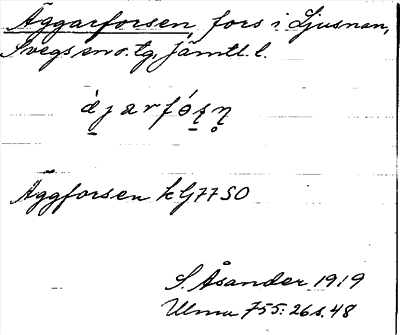 Äggarforsen, fors i Ljusnan,
Svegs sn o. tg, Jämtl. l.
Äggforsen k G77 SO
S. Åsander 1919
Ulma 755: 26 s. 48